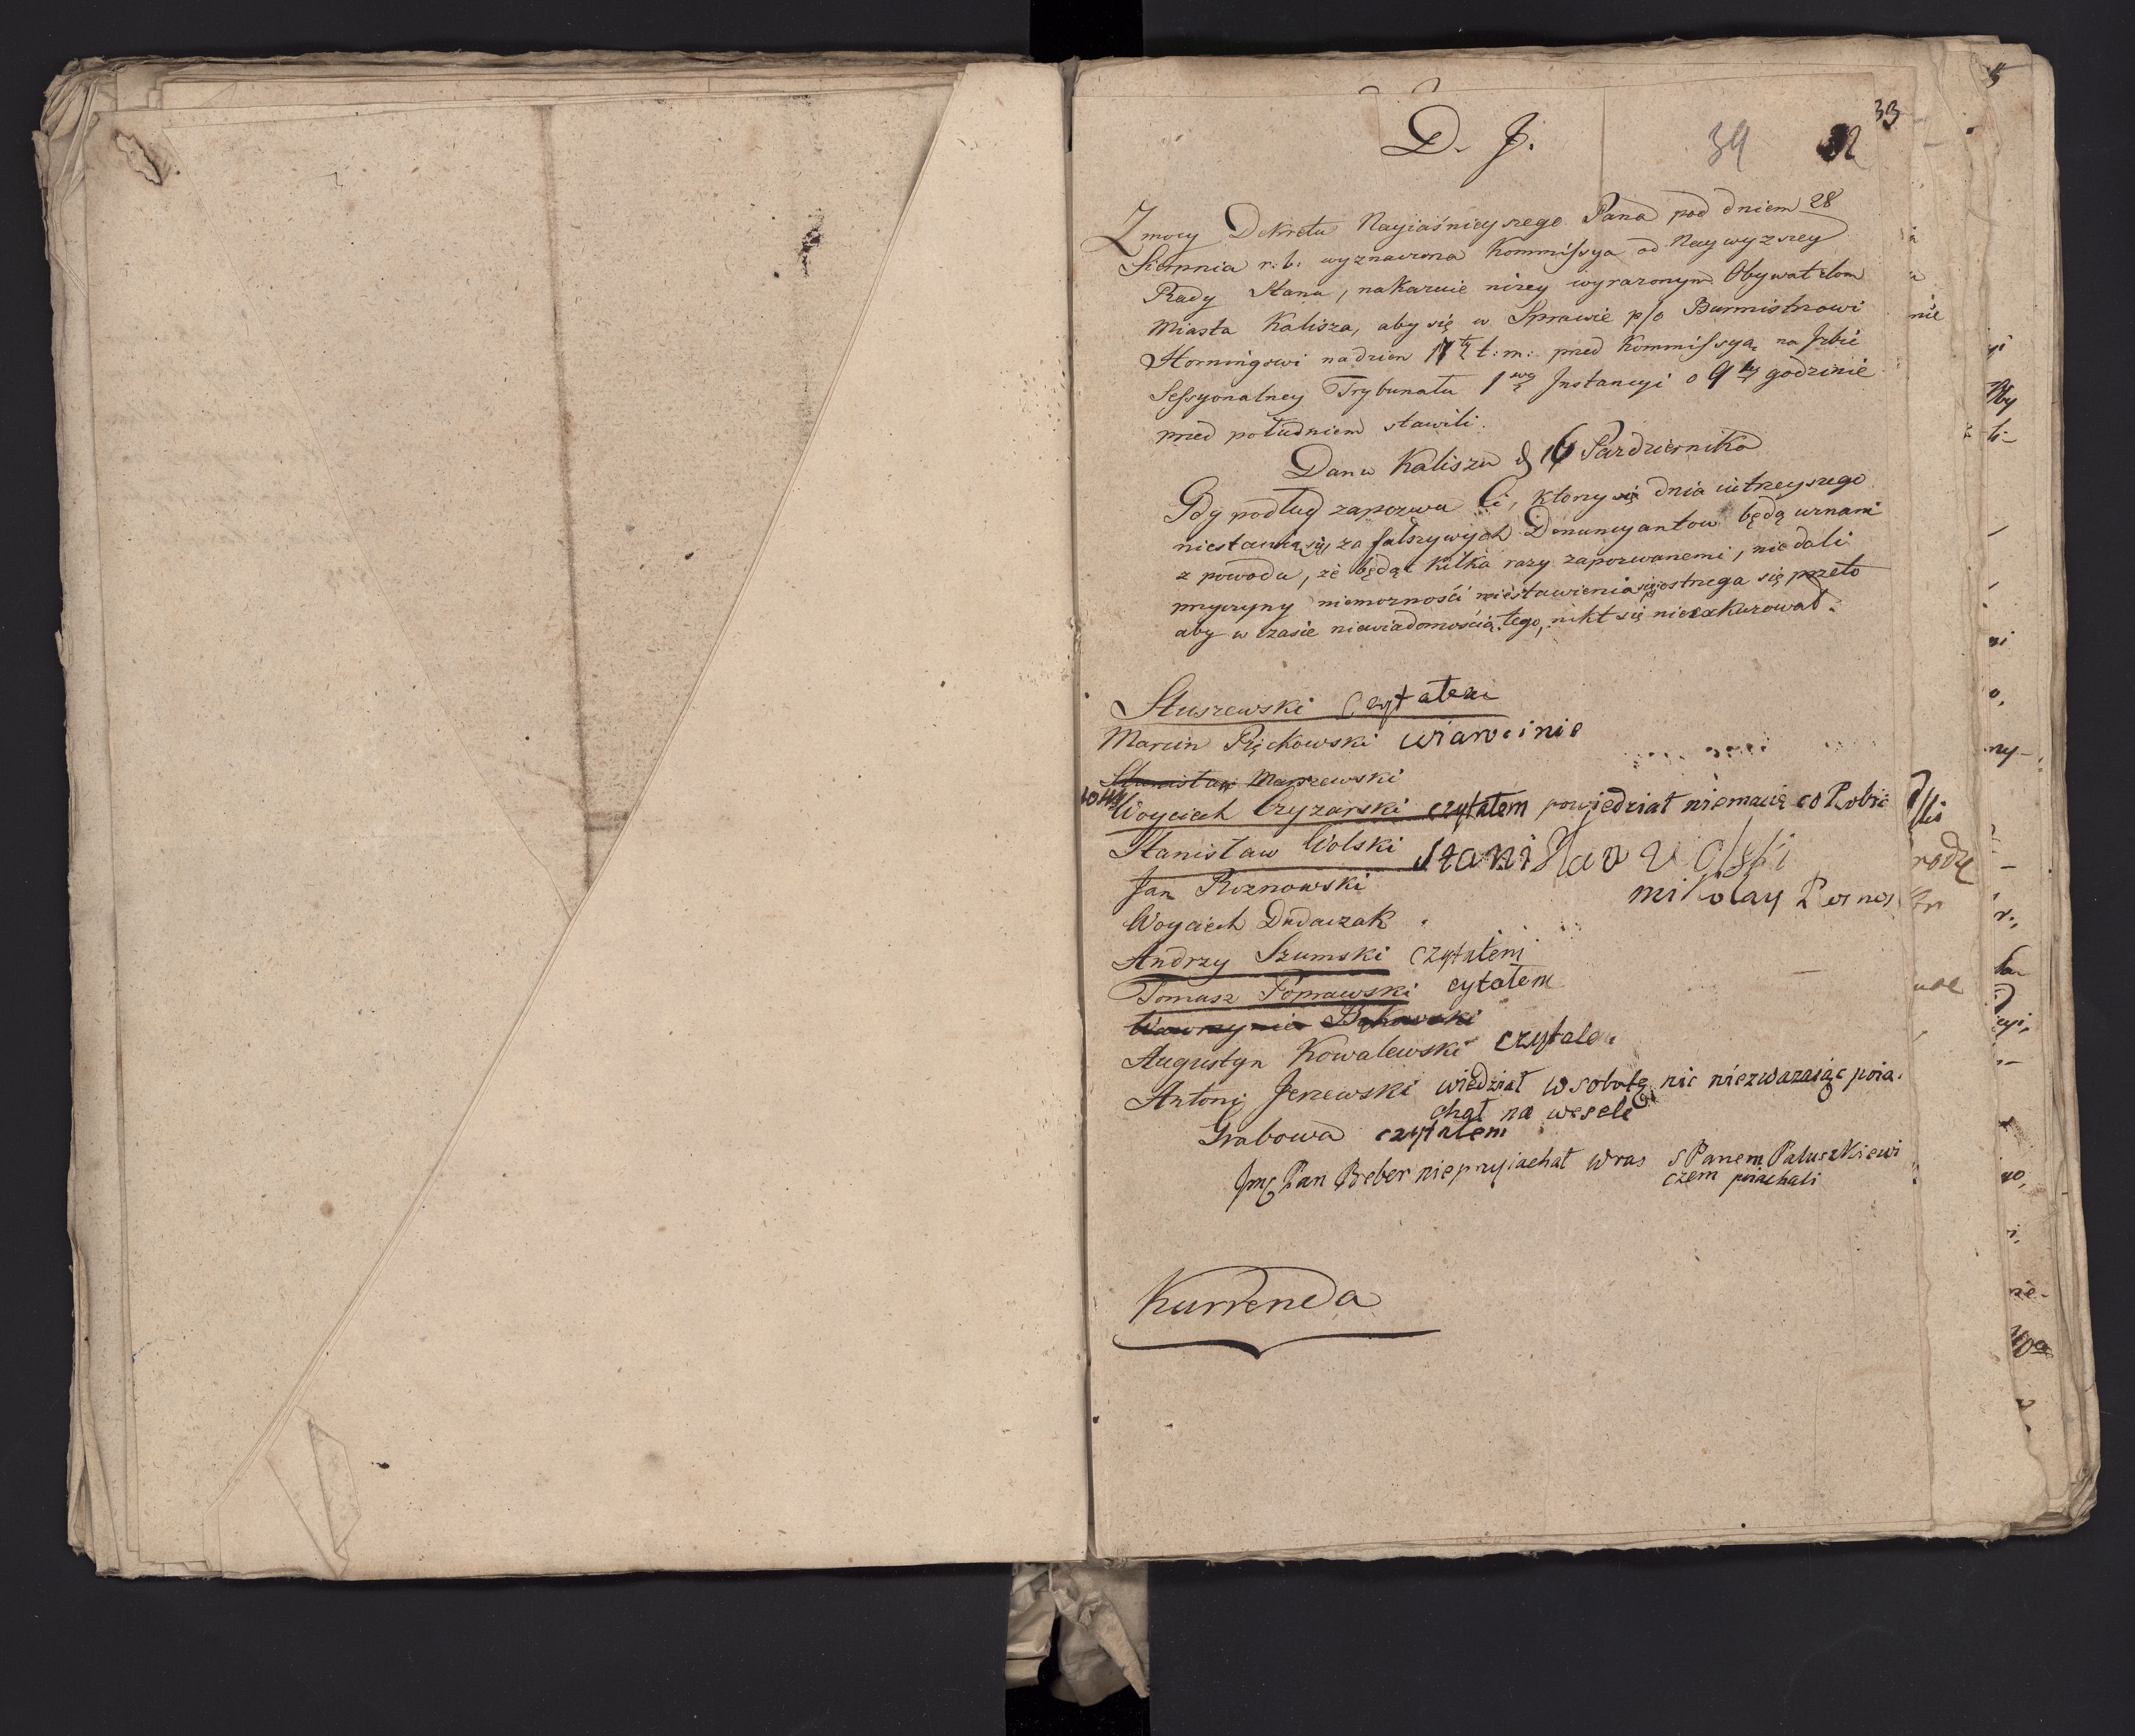 33
D. J.
39
Z mocy Dekretu Nayiaśnieyszego Pana pod dniem 28
Sierpnia r. b. wyznaczona Kommissya od Naywyzszey
Rady Stanu, nakazuie nizey wyrazonym Obywatelom
Miasta Kalisza, aby się w Sprawie p/o Burmistrzowi
Horningowi na dzien 17 t. m. przed Kommissyą na Jzbie
Sessyonalney Trybunału 1 Jnstancyi o 9 godzinie
przed południem stawili.
Dan w Kaliszu d 16 Pazdziernika
Gdy podług zapozwu Ci, ktorzy się dnia iutrzeyszego
niestawią się, za fałszywych Denuncyantow będą uznani
z powodu, ze będąc kilka razy zapozwanemi, nie dali
przyczyny niemozności niestawienia się ostrzega się przeto
aby w czasie niewiadomością tego, nikt się nie exkuzował.
Stuszewski Czytałem
Marcin Pięckowski
Stanisław Maszewski
Woyciech Cryzarski czytałem powjedział niemaią co Robić
Stanisław Wolski Stanisław Wolski
Jan Roznowski
mikolay
Woyciech Dudaczak
Andrzy Szumski Czytałem
Tomasz Poprawski cytałem
Wawrzyniec Bąkowski
Augustyn Kowalewski czytale
Antoni Jerzewski wiedział w sobotę nic niezwazaiąc poia-
chał na wesele
Grabowa czytałem
Jmć Pan Breber nie przyiachał wras s Panem Paluszkiewi
czem poiachali
Kurrenda